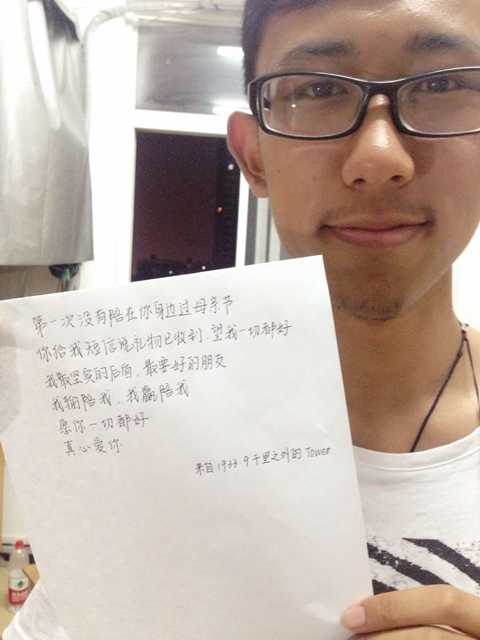 第一次没有陪在你身边过母亲节
你给我短信说礼物已收到，望我一切都好
我最坚实的后盾，最要好的朋友
我输陪我，我赢陪我
愿你一切都好
真心爱你
来自1933.9千里之外的Tower